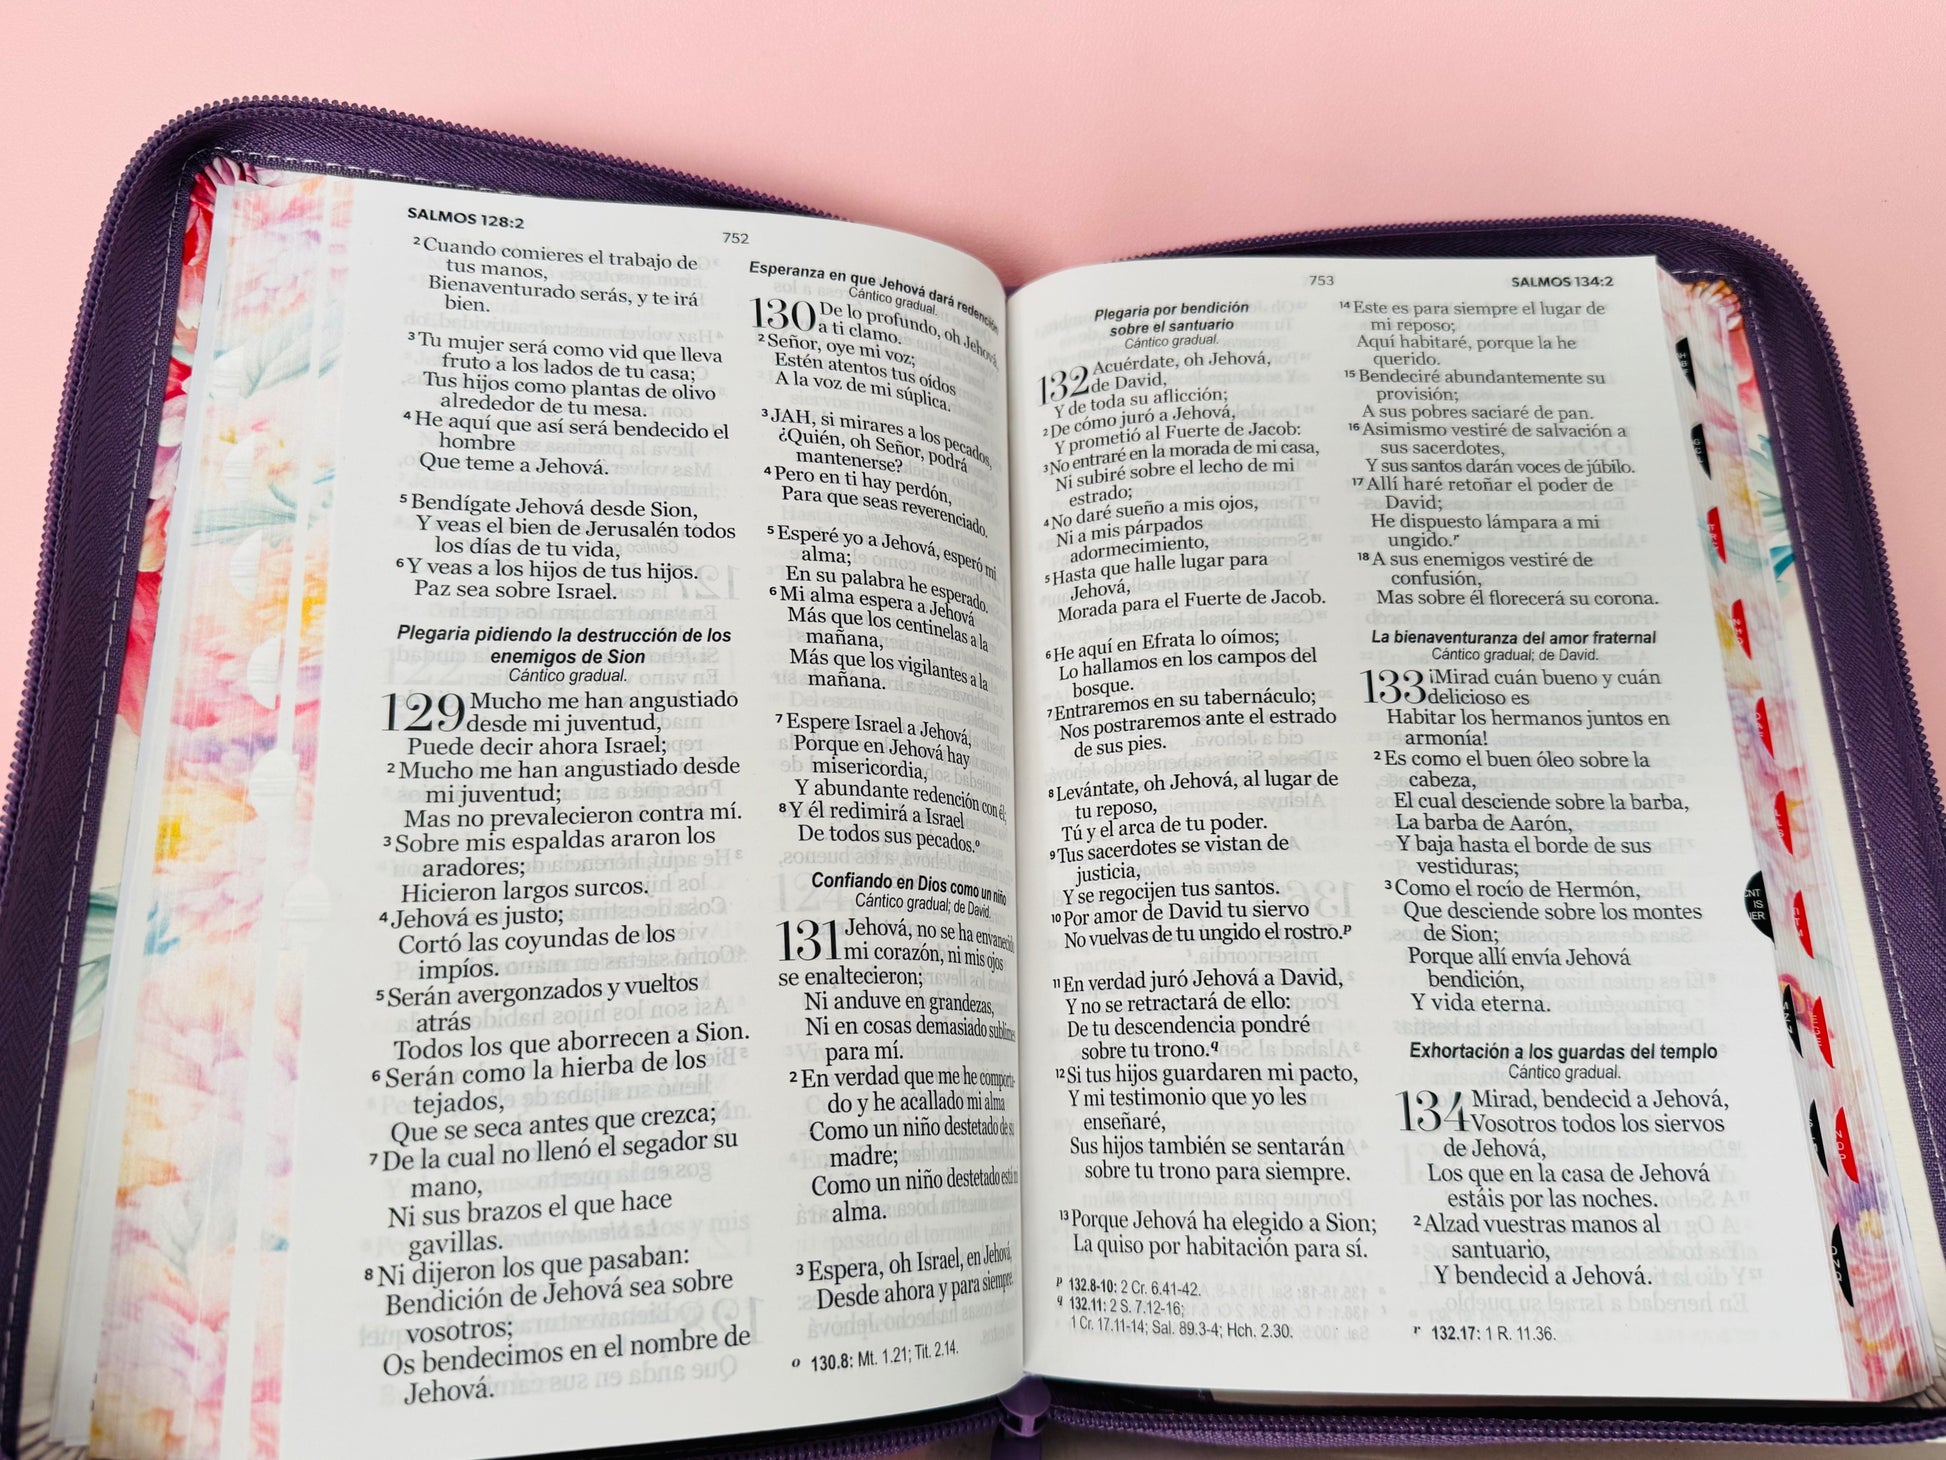 SALMOS 128:2
752
² Cuando comieres el trabajo de
tus manos,
Bienaventurado serás, y te irá
bien.
³ Tu mujer será como vid que lleva
fruto a los lados de tu casa;
Tus hijos como plantas de olivo
alrededor de tu mesa.
⁴ He aquí que así será bendecido el
hombre
Que teme a Jehová.
⁵ Bendígate Jehová desde Sion,
Y veas el bien de Jerusalén todos
los días de tu vida,
⁶ Y veas a los hijos de tus hijos.
Paz sea sobre Israel.
Plegaria pidiendo la destrucción de los
enemigos de Sion
Cántico gradual.
129 Mucho me han angustiado
desde mi juventud,
Puede decir ahora Israel;
² Mucho me han angustiado desde
mi juventud;
Mas no prevalecieron contra mí.
³ Sobre mis espaldas araron los
aradores;
Hicieron largos surcos.
⁴ Jehová es justo;
Cortó las coyundas de los
impíos.
⁵ Serán avergonzados y vueltos
atrás
Todos los que aborrecen a Sion.
⁶ Serán como la hierba de los
tejados,
Que se seca antes que crezca;
⁷ De la cual no llenó el segador su
mano,
Ni sus brazos el que hace
gavillas.
⁸ Ni dijeron los que pasaban:
Bendición de Jehová sea sobre
vosotros;
Os bendecimos en el nombre de
Jehová.
Esperanza en que Jehová dará redención
Cántico gradual.
130 De lo profundo, oh Jehová,
a ti clamo.
² Señor, oye mi voz;
Estén atentos tus oídos
A la voz de mi súplica.
³ JAH, si mirares a los pecados,
¿Quién, oh Señor, podrá
mantenerse?
⁴ Pero en ti hay perdón,
Para que seas reverenciado.
⁵ Esperé yo a Jehová, esperó mi
alma;
En su palabra he esperado.
⁶ Mi alma espera a Jehová
Más que los centinelas a la
mañana,
Más que los vigilantes a la
mañana.
⁷ Espere Israel a Jehová,
Porque en Jehová hay
misericordia,
Y abundante redención con él;
⁸ Y él redimirá a Israel
De todos sus pecados.º
Confiando en Dios como un niño
Cántico gradual; de David.
131 Jehová, no se ha envanecido
mi corazón, ni mis ojos
se enaltecieron;
Ni anduve en grandezas,
Ni en cosas demasiado sublimes
para mí.
² En verdad que me he comporta-
do y he acallado mi alma
Como un niño destetado de su
madre;
Como un niño destetado está mi
alma.
³ Espera, oh Israel, en Jehová,
Desde ahora y para siempre.
o 130.8: Mt. 1.21; Tit. 2.14.
753
SALMOS 134:2
Plegaria por bendición
sobre el santuario
Cántico gradual.
132 Acuérdate, oh Jehová,
de David,
Y de toda su aflicción;
² De cómo juró a Jehová,
Y prometió al Fuerte de Jacob:
³ No entraré en la morada de mi casa,
Ni subiré sobre el lecho de mi
estrado;
⁴ No daré sueño a mis ojos,
Ni a mis párpados
adormecimiento,
⁵ Hasta que halle lugar para
Jehová,
Morada para el Fuerte de Jacob.
⁶ He aquí en Efrata lo oímos;
Lo hallamos en los campos del
bosque.
⁷ Entraremos en su tabernáculo;
Nos postraremos ante el estrado
de sus pies.
⁸ Levántate, oh Jehová, al lugar de
tu reposo,
Tú y el arca de tu poder.
⁹ Tus sacerdotes se vistan de
justicia,
Y se regocijen tus santos.
¹⁰ Por amor de David tu siervo
No vuelvas de tu ungido el rostro.p
¹¹ En verdad juró Jehová a David,
Y no se retractará de ello:
De tu descendencia pondré
sobre tu trono.q
¹² Si tus hijos guardaren mi pacto,
Y mi testimonio que yo les
enseñaré,
Sus hijos también se sentarán
sobre tu trono para siempre.
¹³ Porque Jehová ha elegido a Sion;
La quiso por habitación para sí.
p 132.8-10: 2 Cr. 6.41-42.
q 132.11: 2 S. 7.12-16;
1 Cr. 17.11-14; Sal. 89.3-4; Hch. 2.30.
¹⁴ Este es para siempre el lugar de
mi reposo;
Aquí habitaré, porque la he
querido.
¹⁵ Bendeciré abundantemente su
provisión;
A sus pobres saciaré de pan.
¹⁶ Asimismo vestiré de salvación a
sus sacerdotes,
Y sus santos darán voces de júbilo.
¹⁷ Allí haré retoñar el poder de
David;
He dispuesto lámpara a mi
ungido.r
¹⁸ A sus enemigos vestiré de
confusión,
Mas sobre él florecerá su corona.
La bienaventuranza del amor fraternal
Cántico gradual; de David.
133 ¡Mirad cuán bueno y cuán
delicioso es
Habitar los hermanos juntos en
armonía!
² Es como el buen óleo sobre la
cabeza,
El cual desciende sobre la barba,
La barba de Aarón,
Y baja hasta el borde de sus
vestiduras;
³ Como el rocío de Hermón,
Que desciende sobre los montes
de Sion;
Porque allí envía Jehová
bendición,
Y vida eterna.
Exhortación a los guardas del templo
Cántico gradual.
134 Mirad, bendecid a Jehová,
Vosotros todos los siervos
de Jehová,
Los que en la casa de Jehová
estáis por las noches.
² Alzad vuestras manos al
santuario,
Y bendecid a Jehová.
r 132.17: 1 R. 11.36.